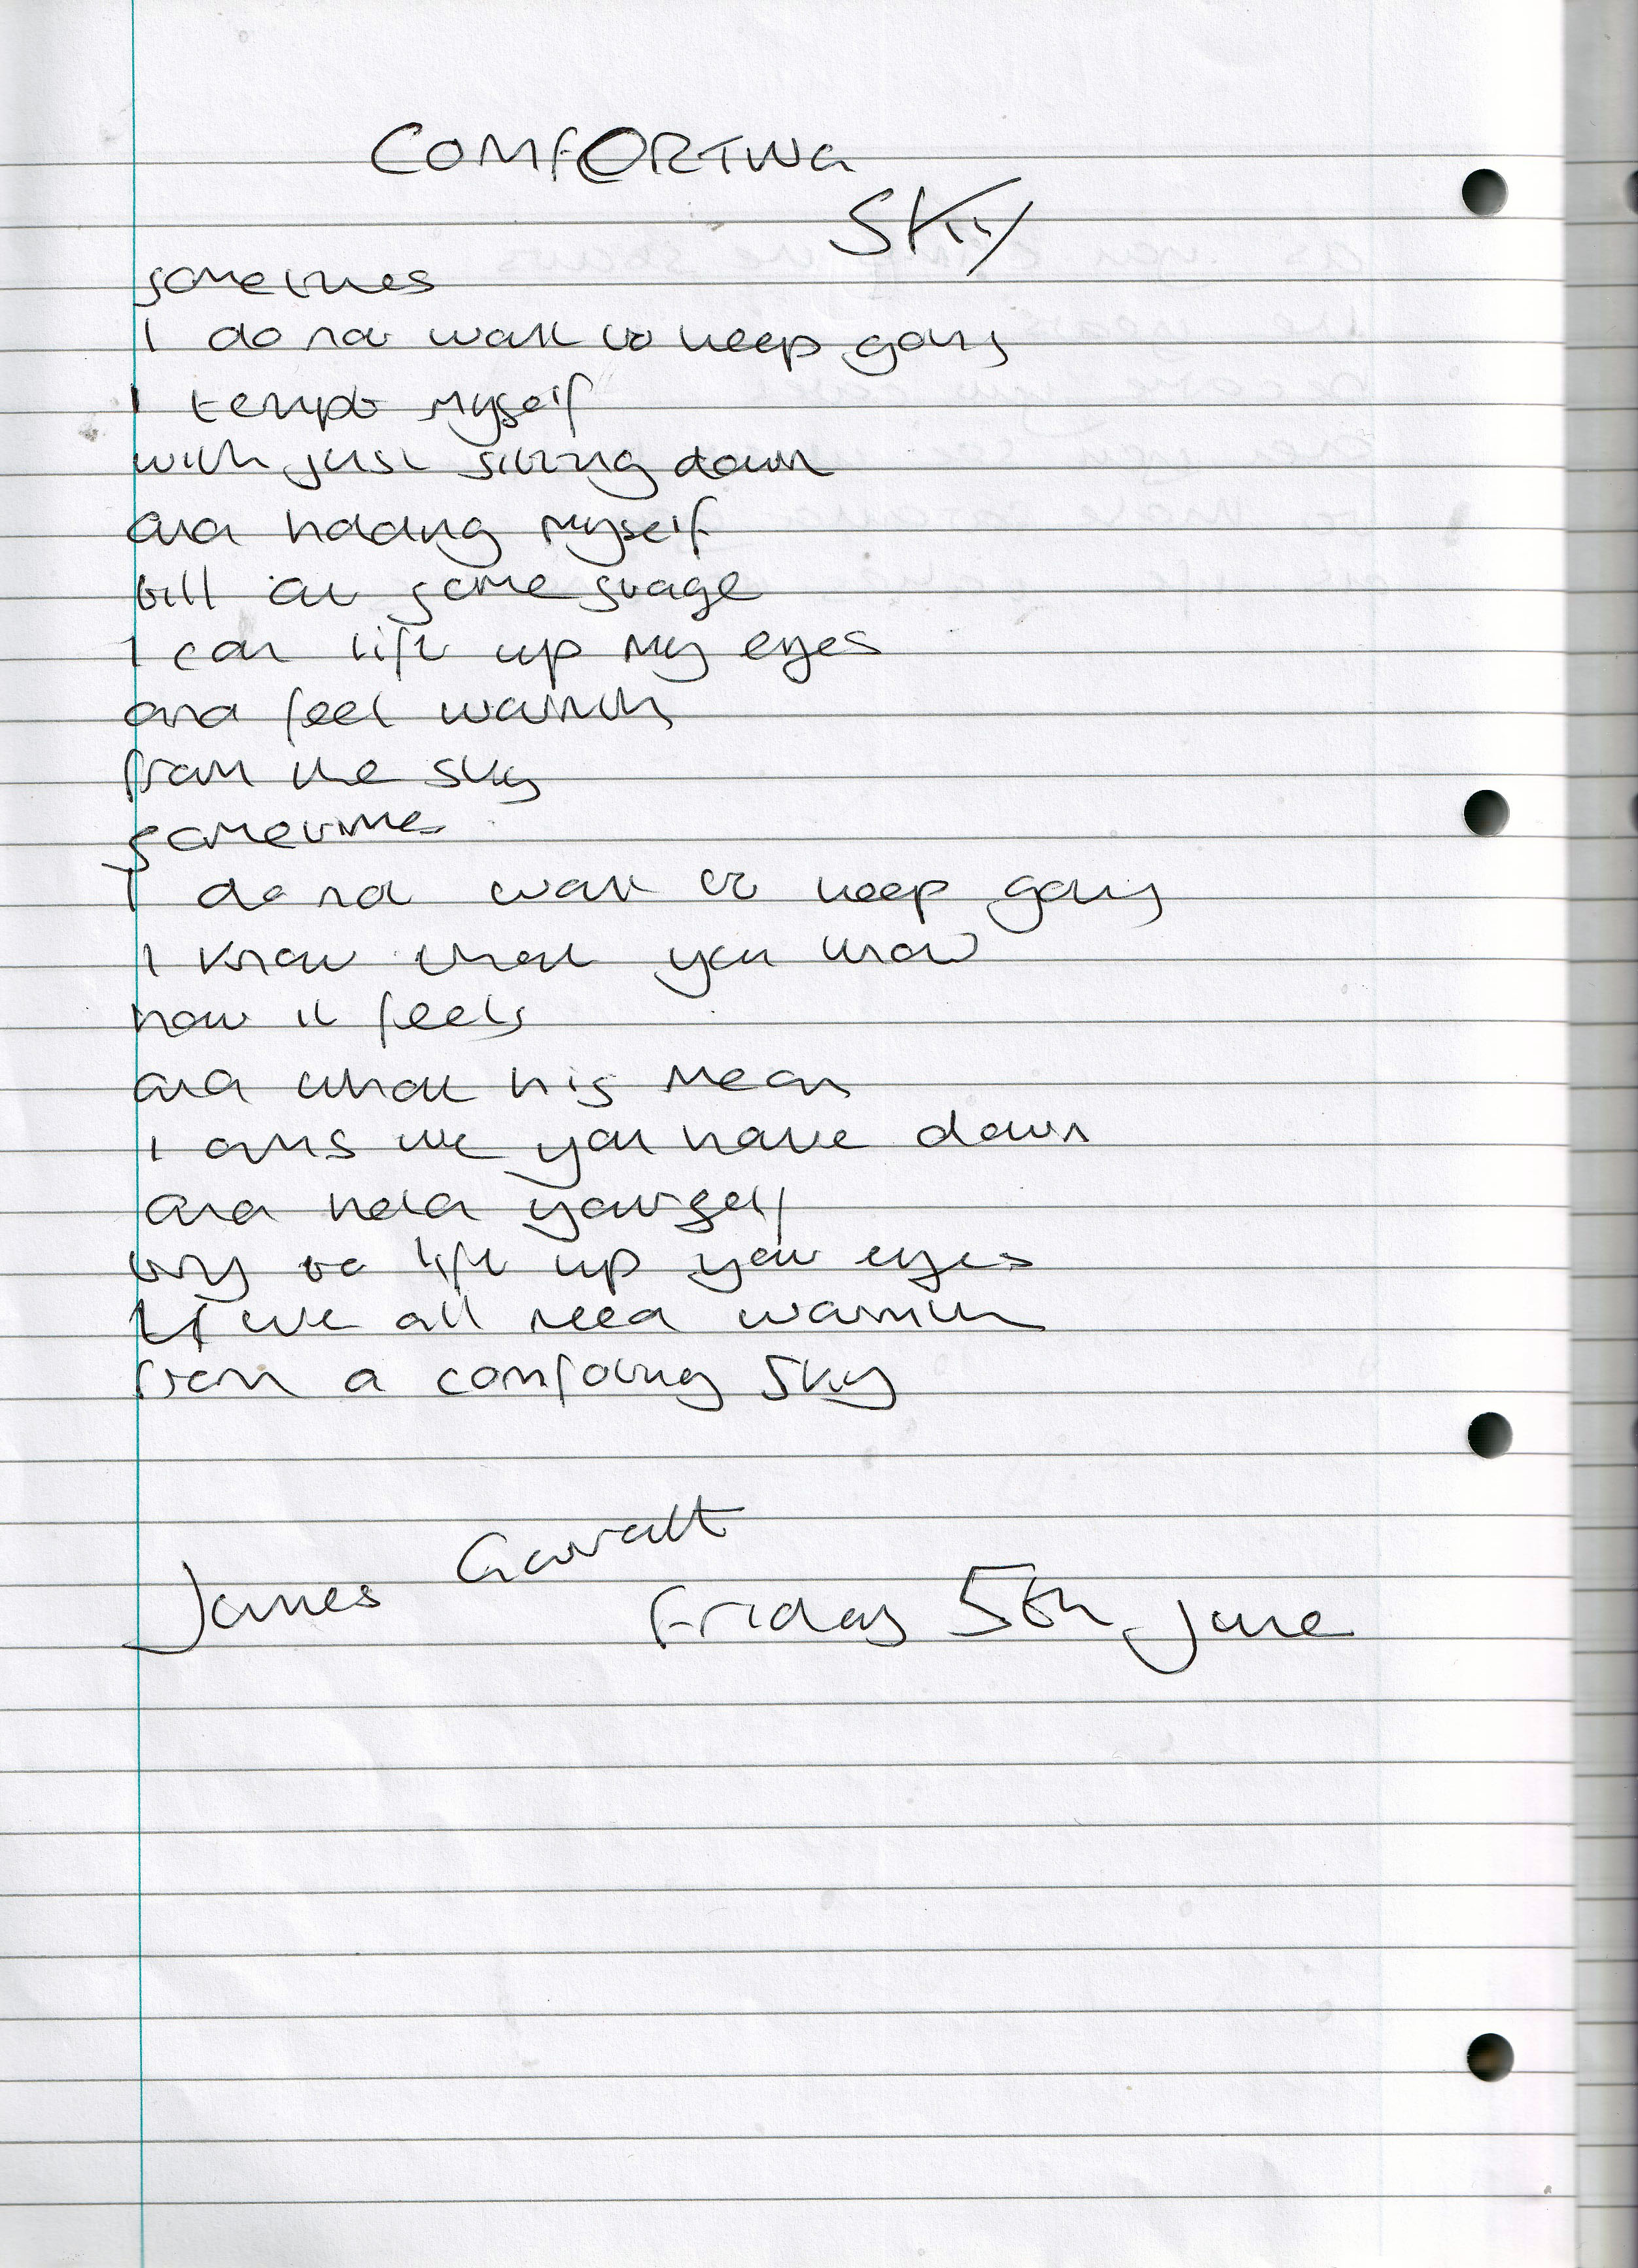 COMFORTING
SKY
sometimes
I do not want to keep going
I tempt myself
with just sitting down
and holding myself
till at some stage
I can lift up my eyes
and feel warmth
from the sky
sometimes
I do not want to keep going
I know that you know
how it feels
and what his means
I am like you have down
and hold yourself
try to lift up your eyes
we all need warmth
from a comforting sky
James Garratt
Friday 5th June